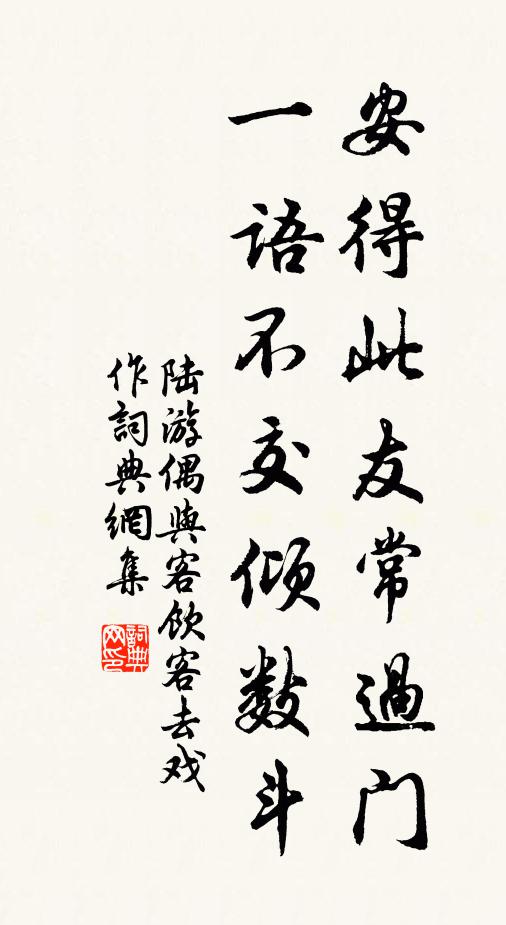 安得此友常過门
一語不交倾数斗
陆游偶與客飲客去戏
作詞典網集
詞典
网印